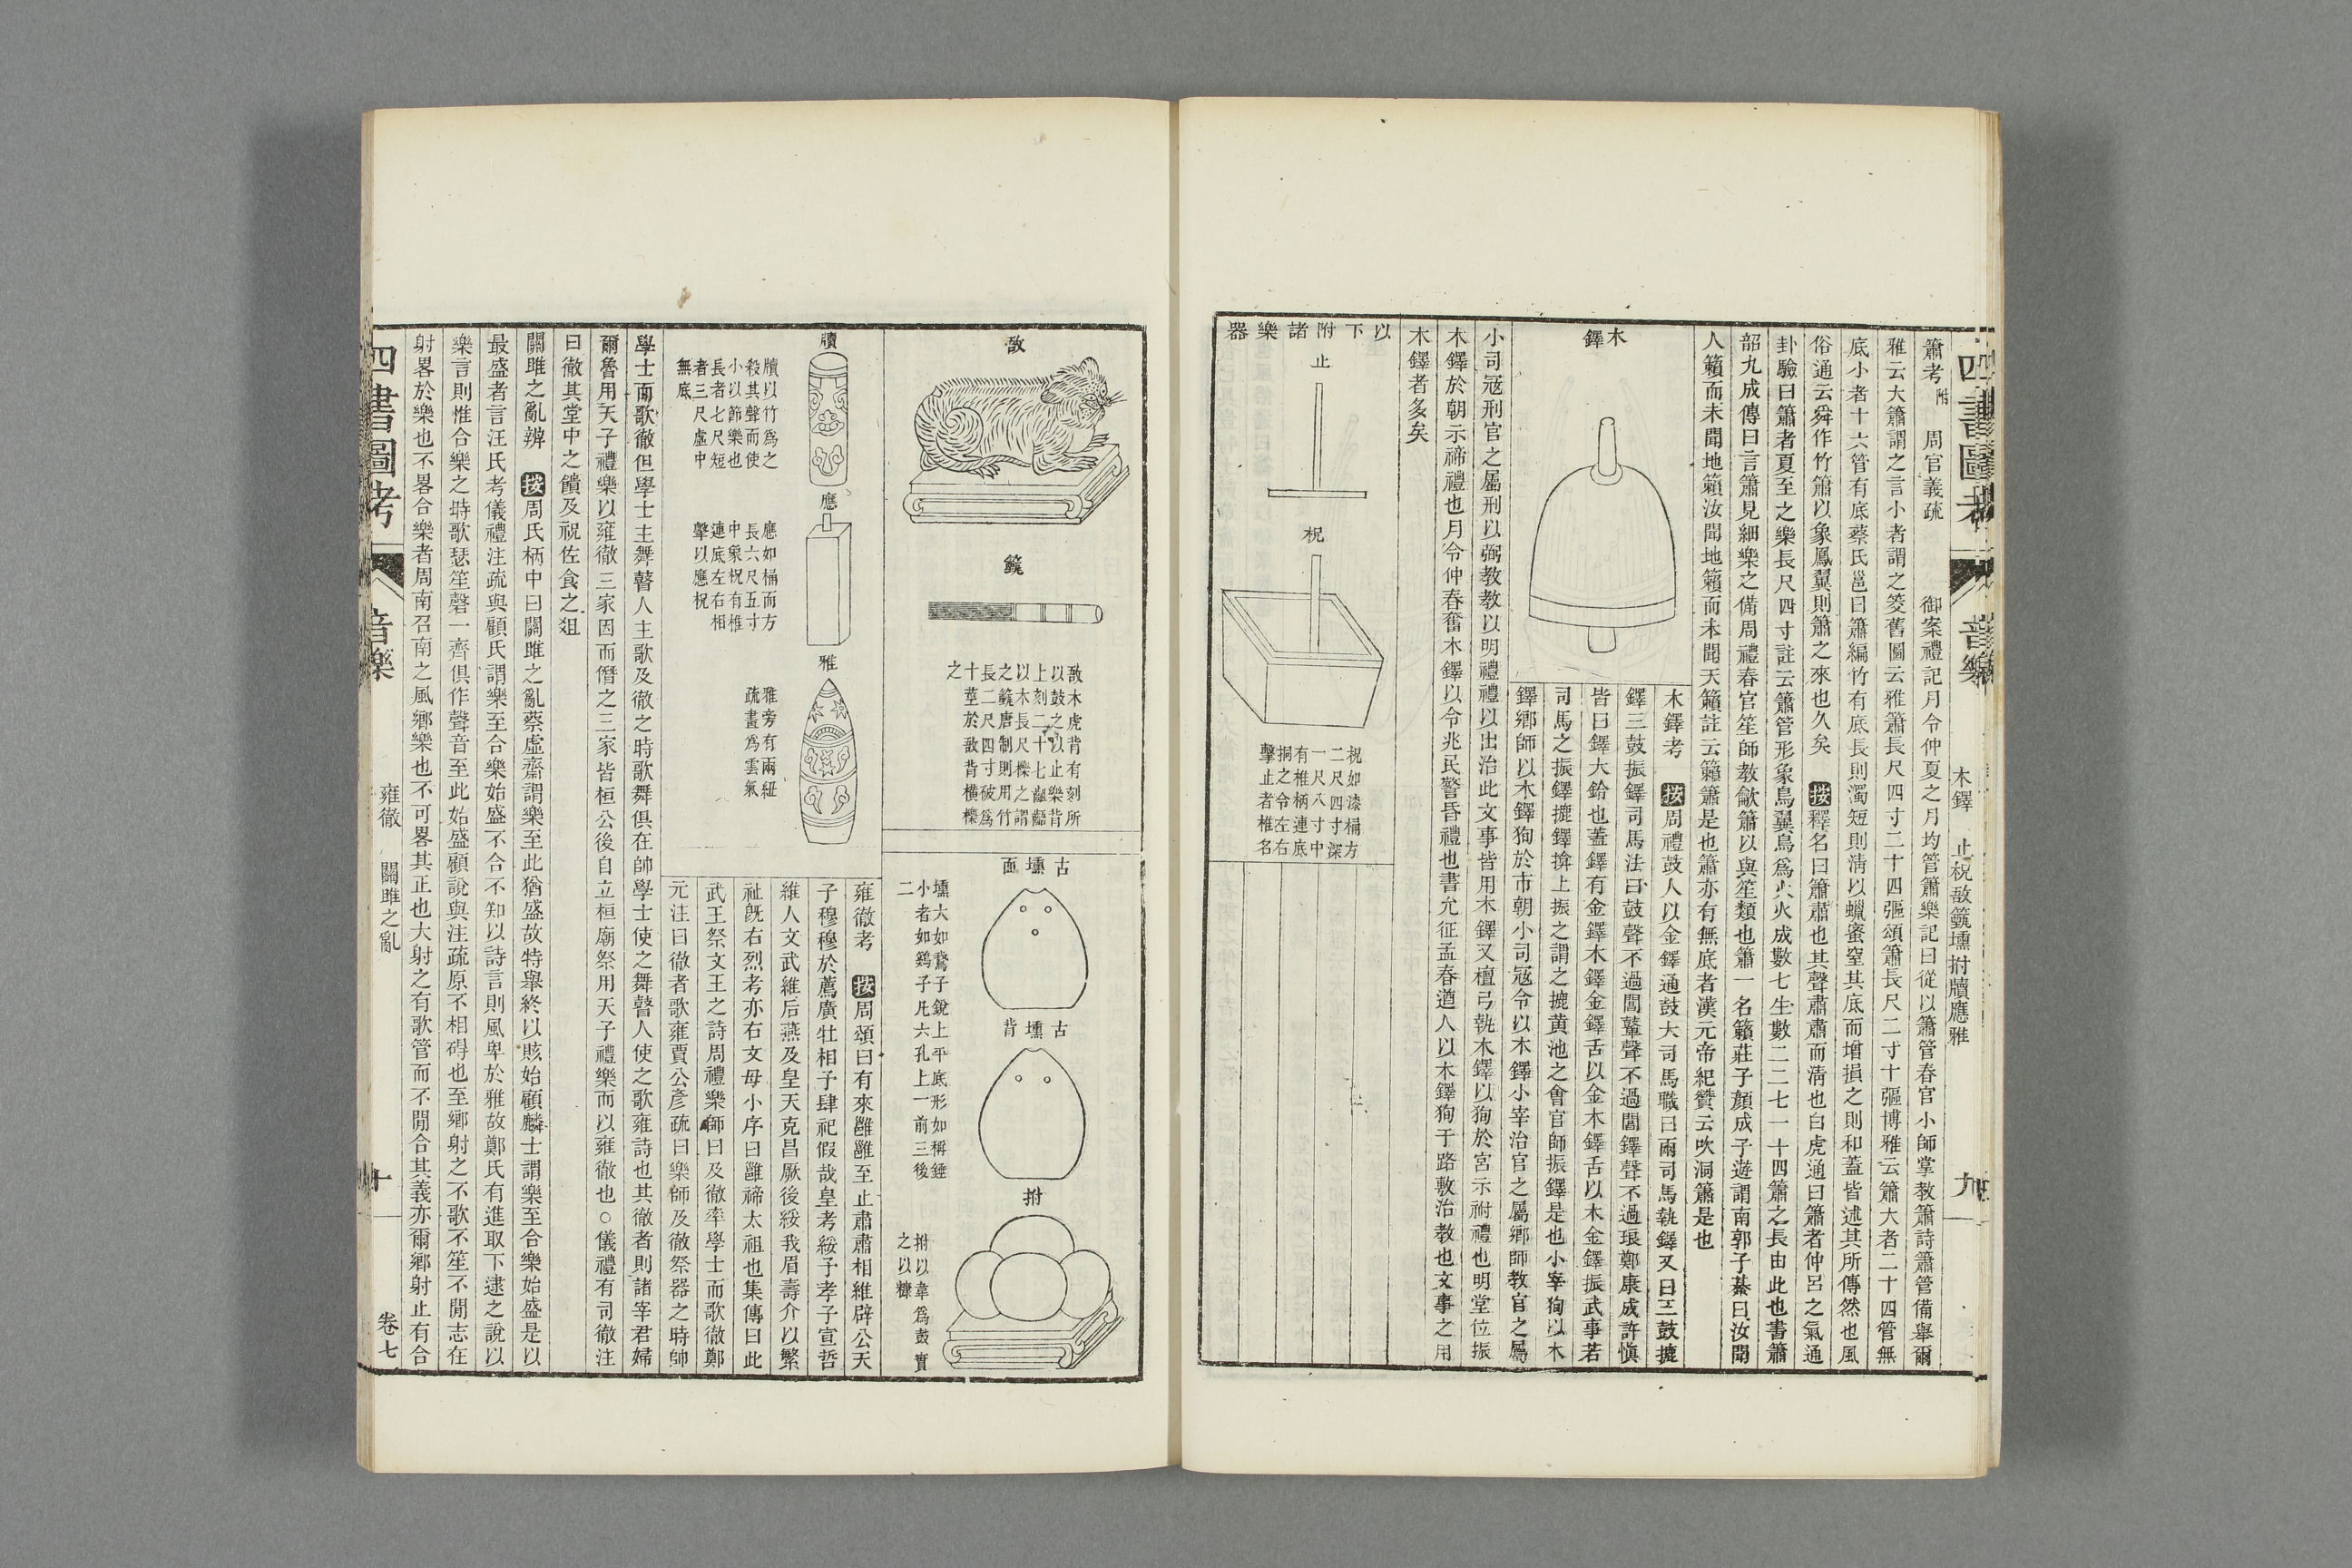 四書圖考
音樂
木鐸
止柷敔籈壎拊牘應雅
九
簫考附 周官義疏 御案禮記月令仲夏之月均管簫樂記曰從以簫管春官小師掌教簫詩簫管備舉爾
雅云大簫謂之言小者謂之筊舊圖云雅簫長尺四寸二十四彄頌簫長尺二寸十彄博雅云簫大者二十四管無
底小者十六管有底蔡氏邕曰簫編竹有底長則濁短則淸以蠟蜜窒其底而增損之則和蓋皆述其所傳然也風
俗通云舜作竹簫以象鳳翼則簫之來也久矣 按釋名曰簫肅也其聲肅肅而淸也白虎通曰簫者仲呂之氣通
卦驗曰簫者夏至之樂長尺四寸註云簫管形象鳥翼鳥爲火火成數七生數二二七一十四簫之長由此也書簫
韶九成傳曰言簫見細樂之備周禮春官笙師教龡簫以與笙類也簫一名籟莊子顔成子遊謂南郭子綦曰汝聞
人籟而未聞地籟汝聞地籟而未聞天籟註云籟簫是也簫亦有無底者漢元帝紀贊云吹洞簫是也
木鐸
木鐸考 按周禮鼓人以金鐸通鼓大司馬職曰兩司馬執鐸又曰三鼓摝
鐸三鼓振鐸司馬法曰鼓聲不過閶鼙聲不過闒鐸聲不過琅鄭康成許愼
皆曰鐸大鈴也蓋鐸有金鐸木鐸金鐸舌以金木鐸舌以木金鐸振武事若
司馬之振鐸摝鐸揜上振之謂之摝黄池之會官師振鐸是也小宰狥以木
鐸鄕師以木鐸狥於市朝小司寇令以木鐸小宰治官之屬鄕師教官之屬
小司冦刑官之屬刑以弼教教以明禮禮以出治此文事皆用木鐸又檀弓執木鐸以狥於宮示祔禮也明堂位振
木鐸於朝示禘禮也月令仲春奮木鐸以令兆民警昏禮也書允征孟春遒人以木鐸狥于路敷治教也文事之用
木鐸者多矣
以下附諸樂器
止
柷
柷如漆桶方
二尺四寸深
一尺八寸中
有椎柄連底
挏之令左右
擊止者椎名
敔
籈
敔木虎背有刻所
以鼓之以止樂背
上刻二十七齟齬
以木長尺櫟之謂
之籈唐制則用竹
長二尺四寸破爲
十莖於敔背横櫟
之
古壎面
古壎背
壎大如鵞子銳上平底形如稱錘
小者如鷄子凡六孔上一前三後
二
拊
拊以韋爲鼓實
之以糠
牘
牘以竹爲之
殺其聲而使
小以節樂也
長者七尺短
者三尺虛中
無底
應
應如桶而方
長六尺五寸
中象柷有椎
連底左右相
擊以應柷
雅
雅旁有兩紐
疏畫爲雲氣
雍徹考 按周頌曰有來雝雝至止肅肅相維辟公天
子穆穆於薦廣牡相予肆祀假哉皇考綏予孝子宣哲
維人文武維后燕及皇天克昌厥後綏我眉壽介以繁
祉旣右烈考亦右文母小序曰雝禘太祖也集傳曰此
武王祭文王之詩周禮樂師曰及徹率學士而歌徹鄭
元注曰徹者歌雍賈公彥疏曰樂師及徹祭器之時帥
學士而歌徹但學士主舞瞽人主歌及徹之時歌舞俱在帥學士使之舞瞽人使之歌雍詩也其徹者則諸宰君婦
爾魯用天子禮樂以雍徹三家因而僭之三家皆桓公後自立桓廟祭用天子禮樂而以雍徹也○儀禮有司徹注
曰徹其堂中之饋及祝佐食之俎
關雎之亂辨 按周氏柄中曰關雎之亂蔡虛齋謂樂至此猶盛故特舉終以賅始顧麟士謂樂至合樂始盛是以
最盛者言汪氏考儀禮注疏與顧氏謂樂至合樂始盛不合不知以詩言則風卑於雅故鄭氏有進取下逮之說以
樂言則惟合樂之時歌瑟笙磬一齊俱作聲音至此始盛顧說與注疏原不相碍也至鄕射之不歌不笙不閒志在
射畧於樂也不畧合樂者周南召南之風鄕樂也不可畧其正也大射之有歌管而不閒合其義亦爾鄕射止有合
四書圖考
音樂
雍徹
關雎之亂
十
卷七